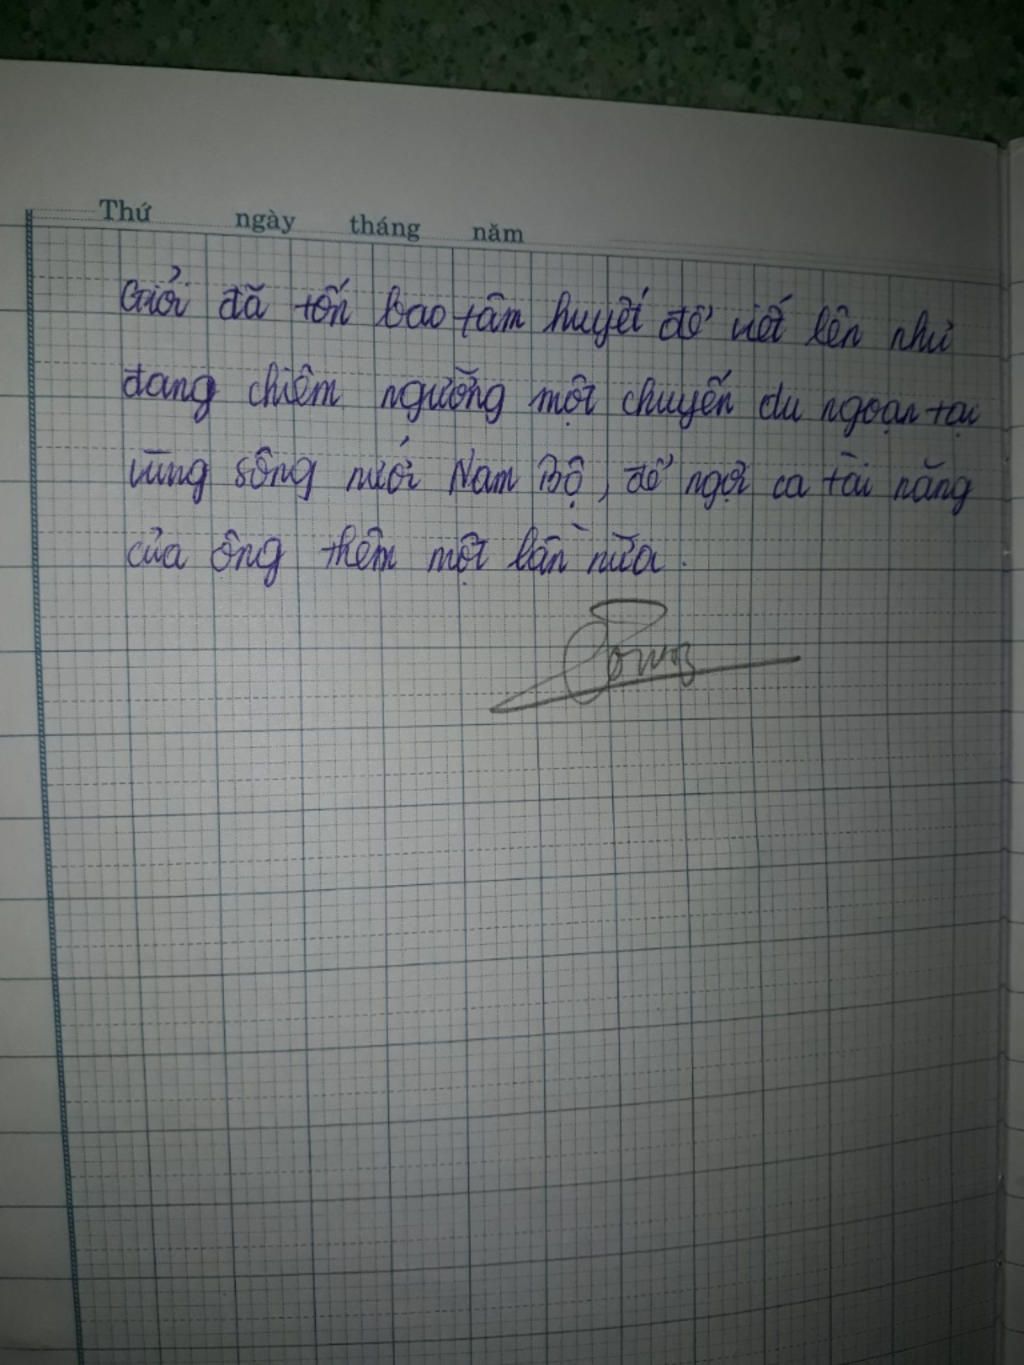 Thứ ngày tháng năm
Giỏi đã tốn bao tâm huyết để viết lên như
đang chiêm ngưỡng một chuyến du ngoạn tại
vùng sông nước Nam Bộ, để ngợi ca tài năng
của ông thêm một lần nữa.